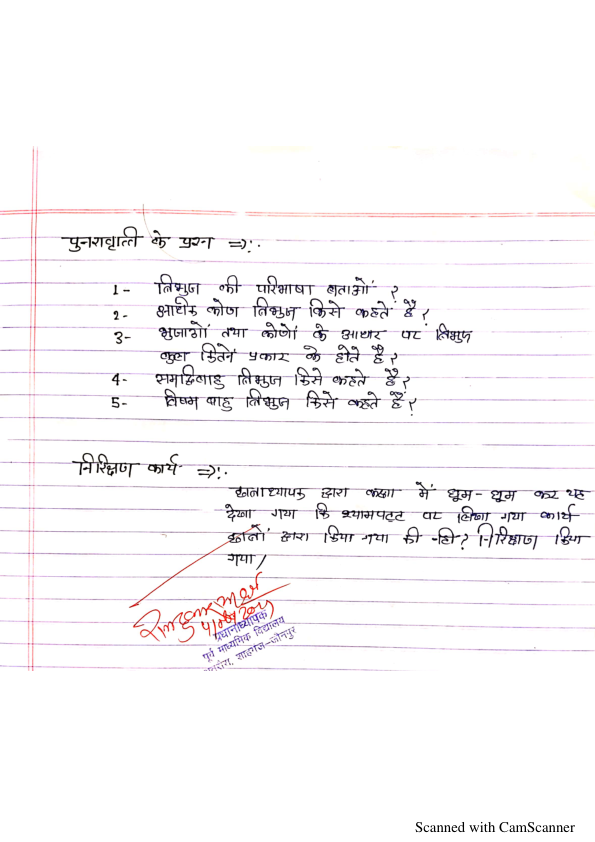 पुनरावृत्ति के प्रश्न ⇒:.
1- त्रिभुज की परिभाषा बताओं ?
2- अधिक कोण त्रिभुज किसे कहते हैं ?
3- भुजाओं तथा कोणों के आधार पर त्रिभुज
कुल कितने प्रकार के होते हैं ?
4- समद्विबाहु त्रिभुज किसे कहते हैं ?
5- विषम बाहु त्रिभुज किसे कहते हैं ?
निरिक्षण कार्य ⇒:.
छात्राध्यापक द्वारा कक्षा में घूम-घूम कर यह
देखा गया कि श्यामपट्ट पर लिखा गया कार्य
छात्रों द्वारा किया गया की नही ? निरिक्षण किया
गया /
प्रधानाध्यापक
पूर्व माध्यमिक विद्यालय
शाहगंज-जौनपुर
Scanned with CamScanner